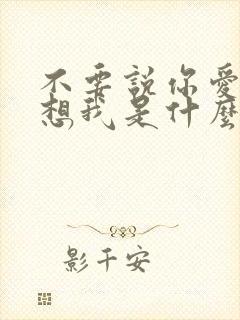 不要説你愛
想我是什麼
影千安